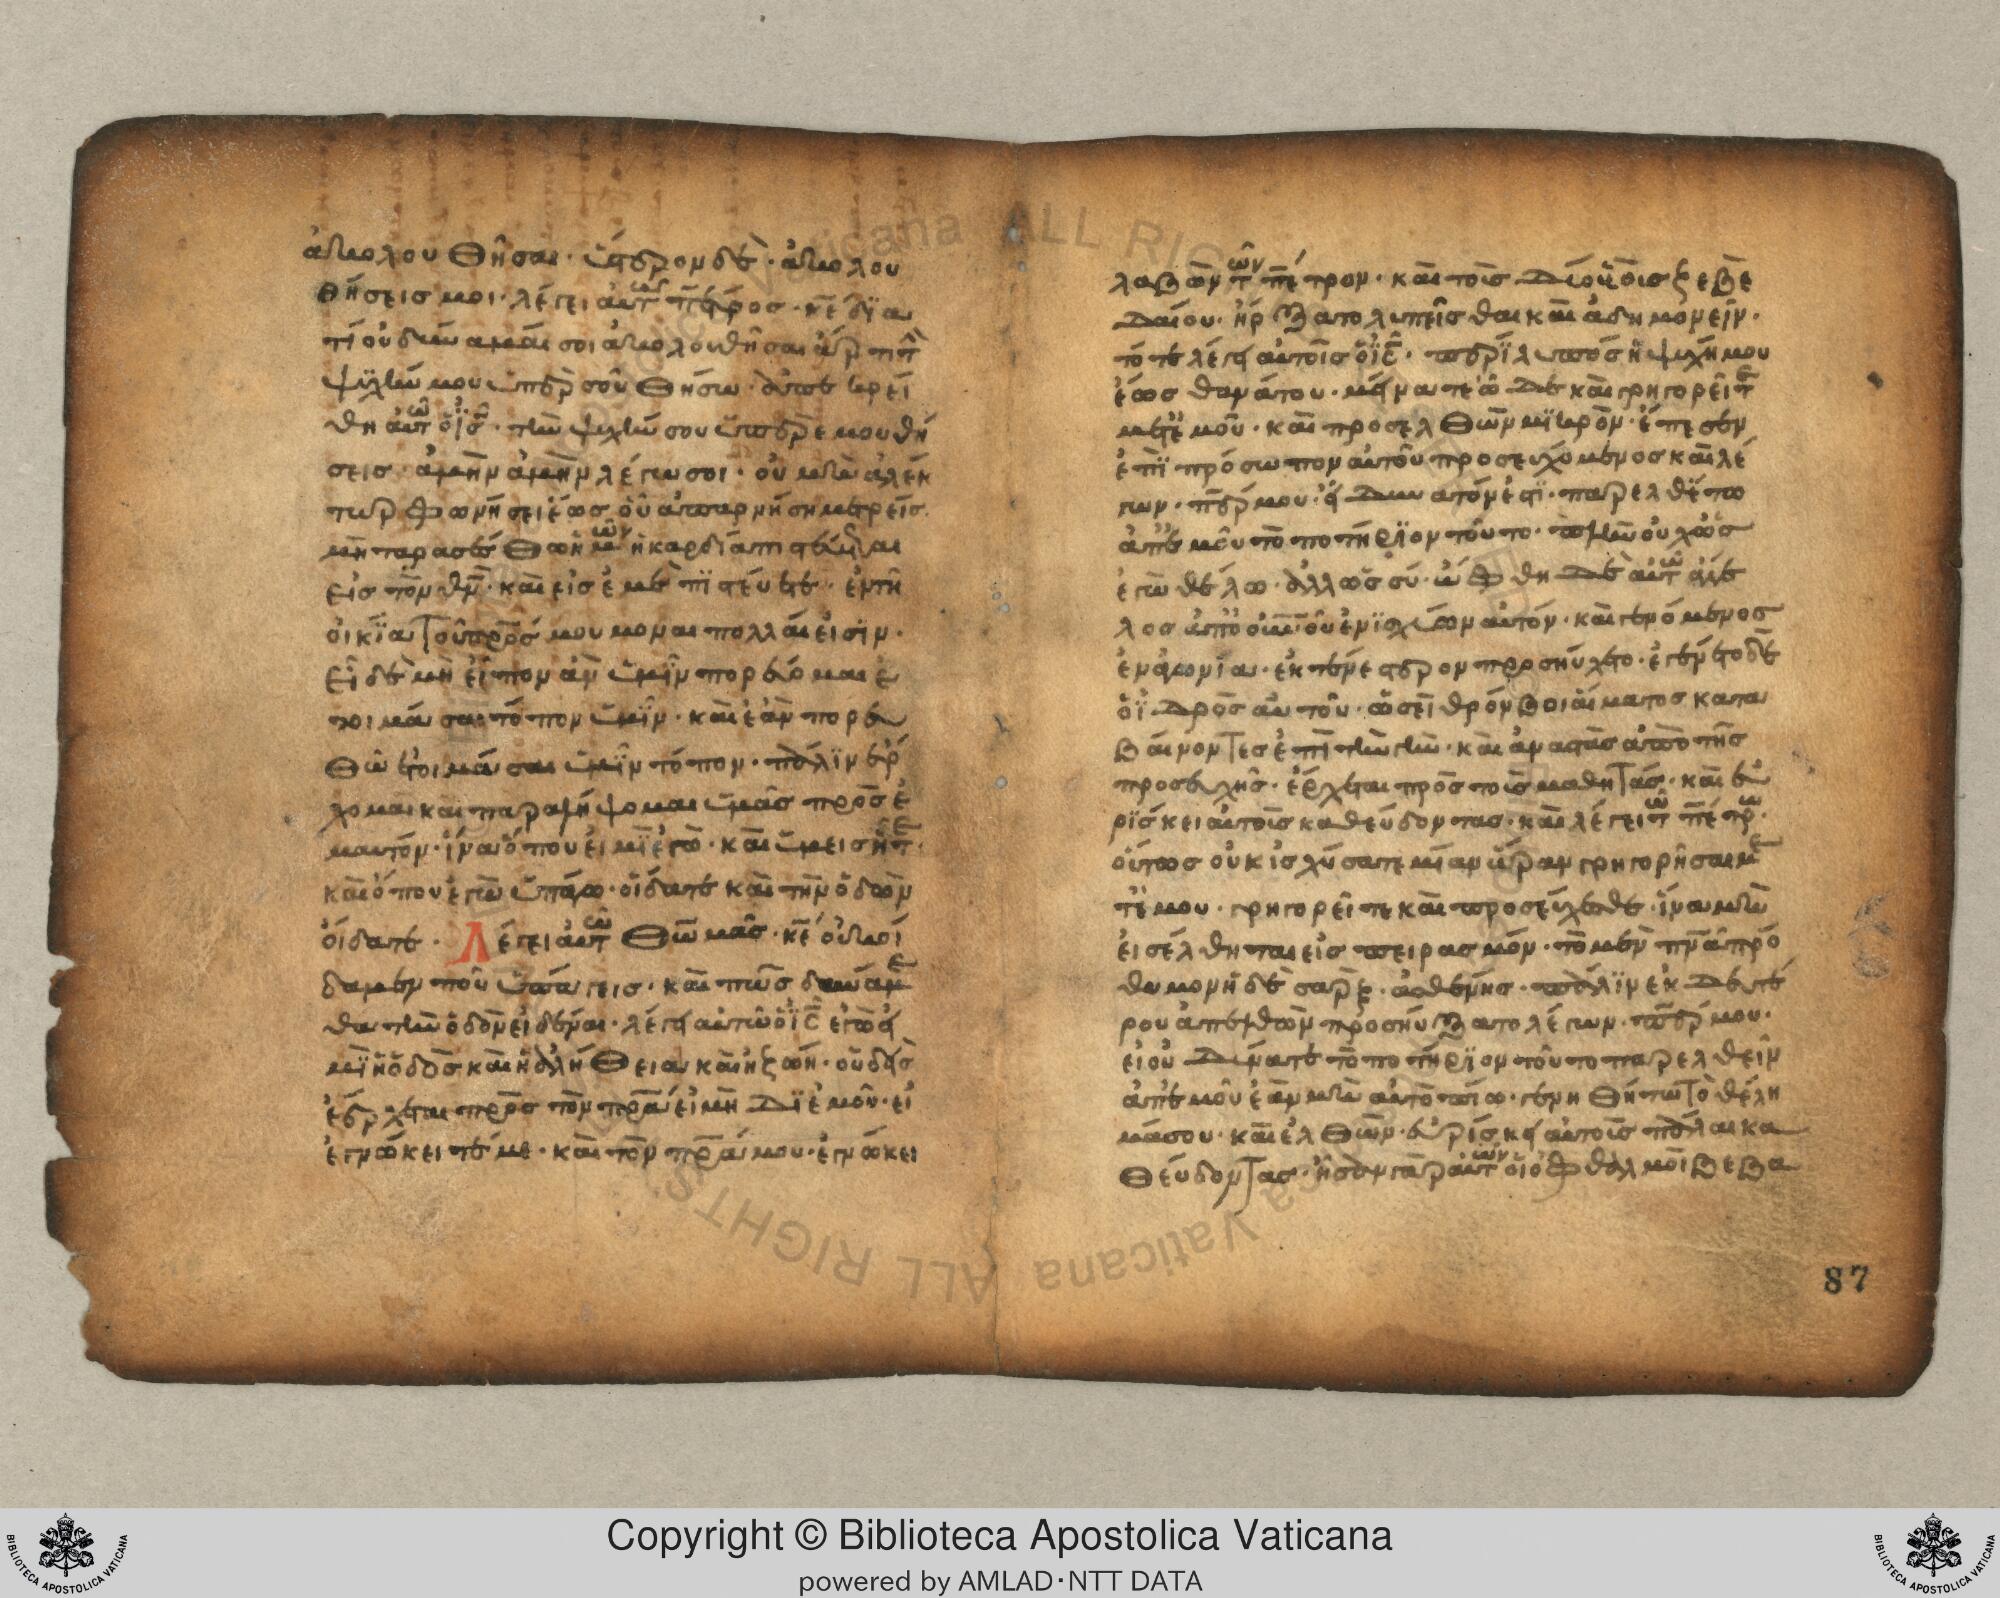 ἀκολουθῆσαι· ὕστερον δὲ· ἀκολου
θήσεις μοι· λέγει αὐτῶ πέτρος· κε δϊα
τί οὐ δύναμαί σοι ἀκολουθῆσαι ἄρτι τὴν
ψϋχήν μου ὑπὲρ σοῦ θήσω· ἀπεκρί
θη αὐτῶ ὁ ις· τὴν ψυχήν σου ὑπὲρ ἐμοῦ θή
σεις· ἀμὴν ἀμὴν λέγω σοι· οὐ μὴ ἀλέκ
τωρ φωνήσει ἕως οὗ ἀπαρνήση με τρεῖς·
μὴ ταρασσέσθω ὑμῶν ἡ καρδία πιστεύεται
εἰς τὸν θν· καὶ εἰς ἐμὲ πϊστεύετε· ἐν τῆ
οἰκία τοῦ πρς μου μοναι πολλαί εἰσϊν·
εἰ δὲ μὴ εἶπον ἂν ὑμῖν πορεύομαι ἑ
τοιμάσαι τόπον ὑμῖν· καὶ ἐὰν πορευ
θῶ ἑτοιμάσαι ὑμῖν τόπον· πάλϊν ἔρ
χομαι καὶ παραλήψομαι ὑμᾶς πρὸς ἐ
μαυτόν· ἵνα ὅπου εἰμὶ ἐγὼ· καὶ ὑμεις ἦτε·
καὶ ὅπου ἐγὼ ὑπάγω· οἴδατε καὶ τὴν ὁδὸν
οἴδατε· Λέγει αὐτῶ Θωμᾶς· κε οὐκ οἴ
δαμεν ποῦ ὑπάγεις· καὶ πῶς δυνάμε
θα τὴν ὁδὸν εἰδέναι· λέγει αὐτῶ ὁ ις ἐγὼ εἰ
μϊ ἡ ὁδὸς καὶ ἡ ἀλήθεια καὶ ἡ ζωή· οὐδεὶς
ἔρχεται πρὸς τὸν πρα εἰ μὴ δϊ ἐμοῦ· εἰ
ἐγνώκειτέ με· καὶ τὸν πρα μου· ἐγνώκει
λαβὼν τὸν πέτρον· καὶ τοὺς δύο υἱοὺς ζεβε
δαίου· ἤρξατο λυπεῖσθαι καὶ ἀδημονεῖν·
τότε λέγει αὐτοῖς ὁ ις· περϊλυπός ἡ ψυχή μου
ἕως θανάτου· μείνατε ὧδε καὶ γρηγορεῖτε
μετ ἐμοῦ· καὶ προσελθὼν μϊκρὸν· ἔπεσεν
ἐπὶ πρόσωπον αὐτοῦ προσευχόμενος καὶ λέ
γων· περ μου· εἰ δυνατόν ἐστϊ· παρελθέτω
ἀπ ἐμοῦ τὸ ποτήρϊον τοῦτο· πλὴν οὐχ ὡς
ἐγὼ θέλω· ἀλλ ὡς σύ· ὤφθη δὲ αὐτῶ ἄγγε
λος ἀπ οὐνου ἐνϊσχύων αὐτόν· καὶ γενόμενος
ἐν ἀγωνία· ἐκτενέστερον προσηύχετο· ἐγένετο δὲ
ὁ ἱδρὸς αὐτοῦ· ὡσεὶ θρόμβοι αἵματος κατα
βαίνοντες ἐπὶ τὴν γῆν· καὶ ἀναστὰς ἀπὸ τῆς
προσευχῆς· ἔρχεται πρὸς τοὺς μαθητάς· καὶ εὑ
ρΐσκει αὐτοὺς καθεύδοντας· καὶ λέγει τῶ πέτρω·
οὕτως οὐκ ἰσχύσατε μίαν ὥραν γρηγορῆσαι με
τ ἐμου· γρηγορεῖτε καὶ προσεύχεσθε· ἵνα μὴ
εἰσέλθηται εἰς πειρασμόν· τὸ μὲν πνα πρό
θυμον ἡ δὲ σὰρξ· ἀσθενής· πάλϊν ἐκ δευτέ
ρου ἀπελθὼν προσηύξατο λέγων· περ μου·
εἰ οὐ δύναται τὸ ποτήρϊον τοῦτο παρελθεῖν
ἀπ ἐμοῦ ἐὰν μὴ αὐτὸ πίω· γενηθήτω τὸ θέλη
μά σου· καὶ ἐλθὼν· εὑρίσκει αὐτοὺς πάλαι κα
θεύδοντας· ἦσαν γὰρ αὐτῶν οἱ ὀφθαλμοὶ βεβα
87
Copyright © Biblioteca Apostolica Vaticana
powered by AMLAD·NTT DATA
BIBLIOTECA APOSTOLICA VATICANA
BIBLIOTECA APOSTOLICA VATICANA